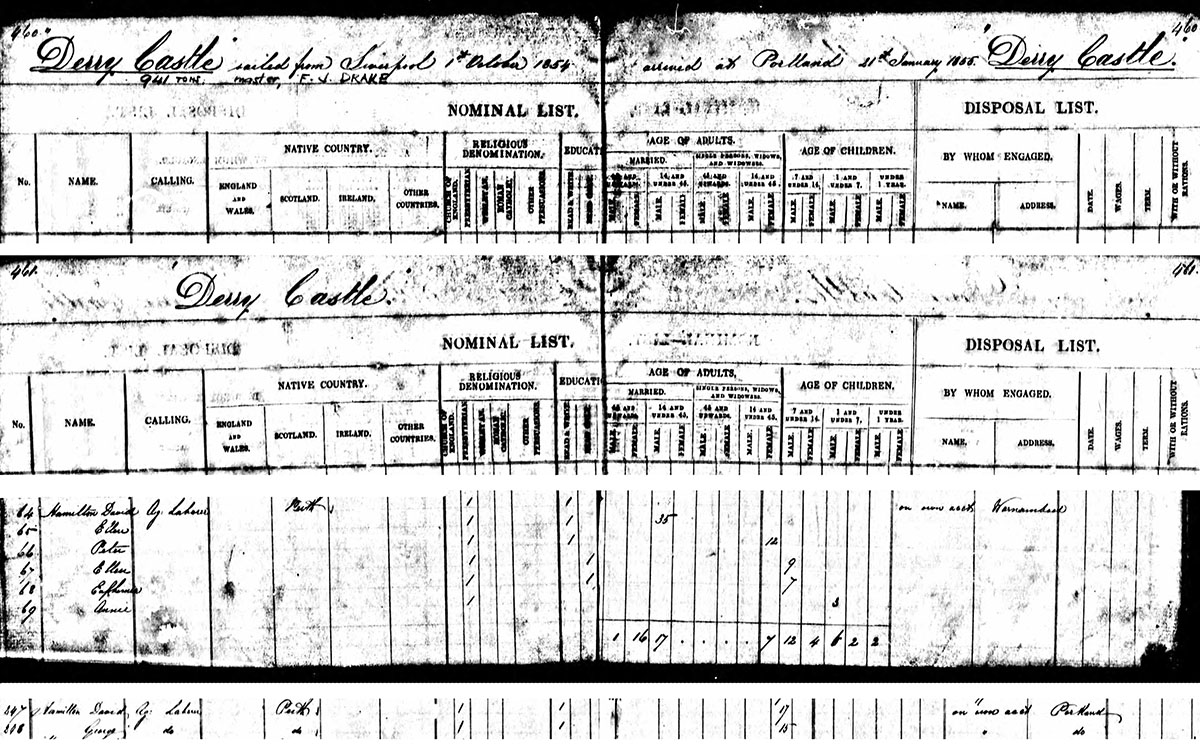 460" 460
"Derry Castle" sailed from Liverpool 1st October 1854 arrived at Portland 21st January 1855 "Derry Castle".
941 TONS. master, F. J. DRAKE
NOMINAL LIST. DISPOSAL LIST.
No. NAME. CALLING. NATIVE COUNTRY. RELIGIOUS DENOMINATION. EDUCATI AGE OF ADULTS. AGE OF CHILDREN. BY WHOM ENGAGED.
MARRIED. SINGLE PERSONS, WIDOWS, AND WIDOWERS.
ENGLAND AND WALES. SCOTLAND. IRELAND. OTHER COUNTRIES. CHURCH OF ENGLAND. PRESBYTERIAN WESLEYAN. ROMAN CATHOLIC. OTHER PERSUASIONS. READ & WRITE 45 AND UPWARDS. 14 AND UNDER 45. 45 AND UPWARDS. 14 AND UNDER 45. 7 AND UNDER 14. 1 AND UNDER 7. UNDER 1 YEAR. NAME. ADDRESS. DATE. WAGES. TERM. WITH OR WITHOUT RATIONS.
MALE. FEMALE MALE. FEMALE MALE. FEMALE MALE. FEMALE MALE. FEMALE MALE. FEMALE MALE. FEMALE
461. 461
"Derry Castle"
NOMINAL LIST. DISPOSAL LIST.
No. NAME. CALLING. NATIVE COUNTRY. RELIGIOUS DENOMINATION. EDUCATI AGE OF ADULTS. AGE OF CHILDREN. BY WHOM ENGAGED.
MARRIED. SINGLE PERSONS, WIDOWS, AND WIDOWERS.
ENGLAND AND WALES. SCOTLAND. IRELAND. OTHER COUNTRIES. CHURCH OF ENGLAND. PRESBYTERIAN WESLEYAN. ROMAN CATHOLIC. OTHER PERSUASIONS. READ & WRITE 45 AND UPWARDS. 14 AND UNDER 45. 45 AND UPWARDS. 14 AND UNDER 45. 7 AND UNDER 14. 1 AND UNDER 7. UNDER 1 YEAR. NAME. ADDRESS. DATE. WAGES. TERM. WITH OR WITHOUT RATIONS.
MALE. FEMALE MALE. FEMALE MALE. FEMALE MALE. FEMALE MALE. FEMALE MALE. FEMALE MALE. FEMALE
64 Hamilton David Ag. Laborer Perth 1 1 on own acct
65 Ellen 1 1 35
66 Peter 1 1 12
67 Ellen 1 1 9
68 1 1 7
69 Annie 1 3
1 16 17 . . . . . 7 12 4 6 2 2
247 Hamilton David Ag. Laborer Perth 1 1 17 on own acct Portland
248 George do do 1 1 15 " do